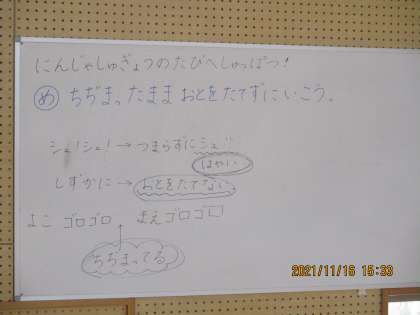 にんじゃしゅぎょうのたびへしゅっぱつ!
め ちぢまったまま おとをたてずにいこう。
シュ!シュ!→つまらずにシュ!!
はやい
しずかに→おとをたてない
よこ ゴロゴロ まえゴロゴロ
ちぢまってる
2021/11/16 15:33